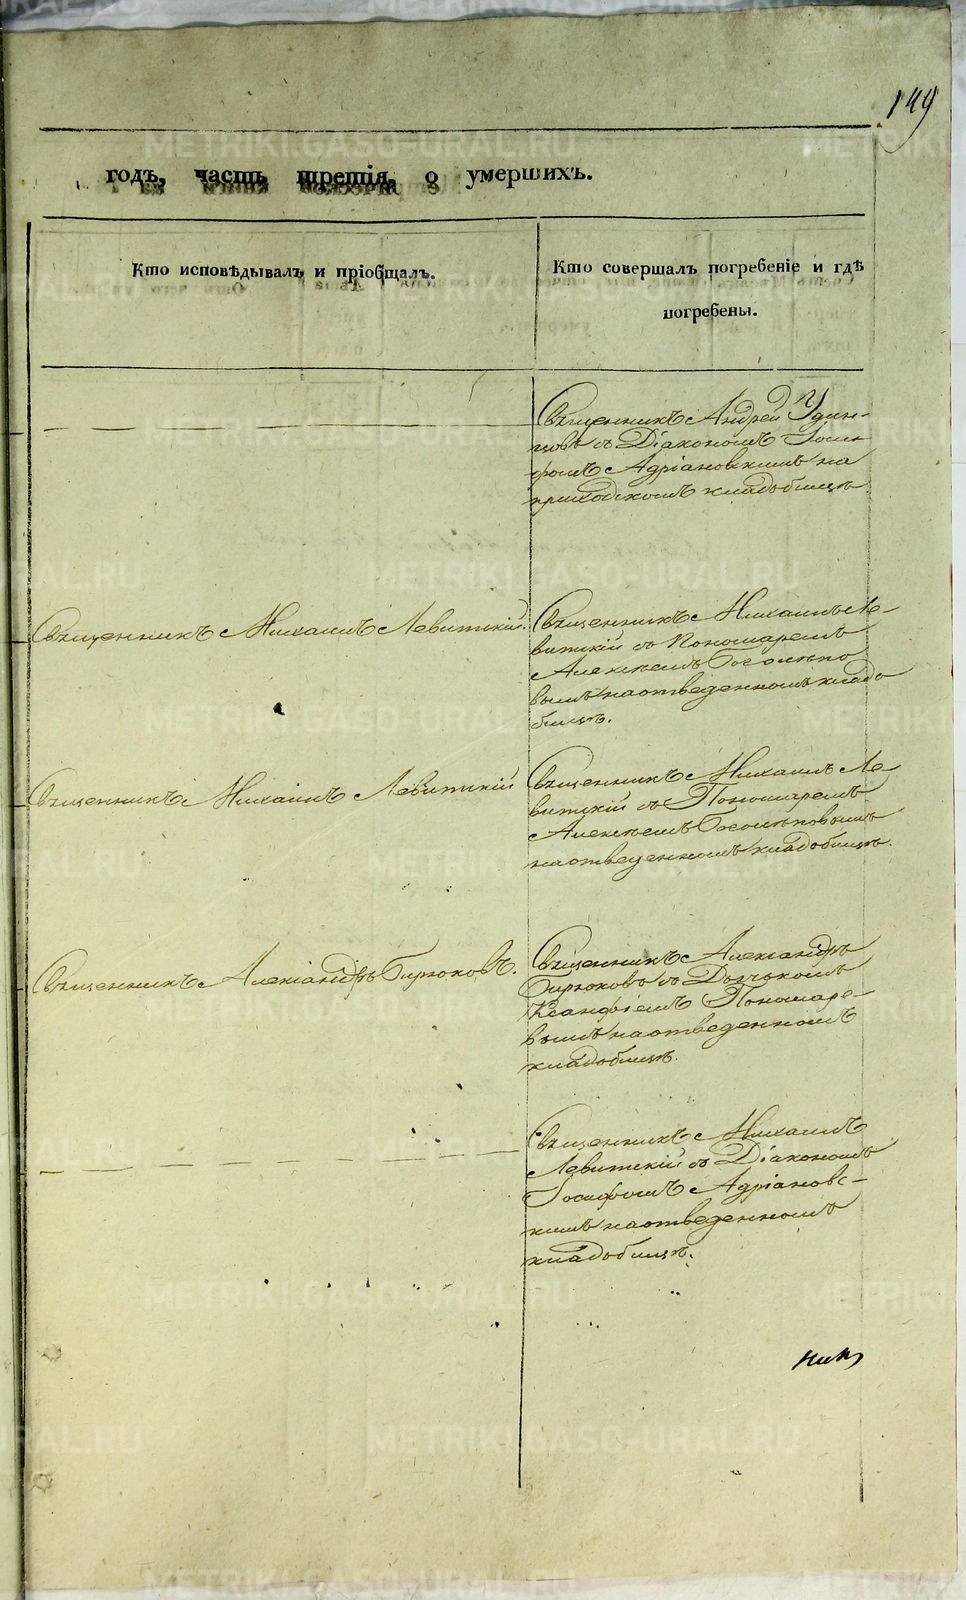 149
годъ, часть третія, о умершихъ.
Кто исповѣдывалъ и пріобщалъ.
Кто совершалъ погребеніе и гдѣ
погребены.
Священникъ Андрей Удин-
цовъ съ Діакономъ Іоси-
фомъ Адріановскимъ на
приходскомъ кладбищѣ
Священникъ Михаилъ Левитскій.
Священникъ Михаилъ Ле-
витскій съ Пономаремъ
Алексѣемъ Боголѣпо
вымъ на отведенномъ кладо
бищѣ.
Священникъ Михаилъ Левитскій
Священникъ Михаилъ Ле-
витскій съ Пономаремъ
Алексѣемъ Боголѣповымъ
на отведенномъ кладбищѣ.
Священникъ Александръ Бирюковъ.
Священникъ Александръ
Бирюковъ съ Дьячкомъ
Ксанфіемъ Пономаре-
вымъ на отведенномъ
кладбищѣ.
Священникъ Михаилъ
Левитскій съ Діакономъ
Іосифомъ Адріановс-
кимъ на отведенномъ
кладбищѣ.
METRIKI.GASO-URAL.RU